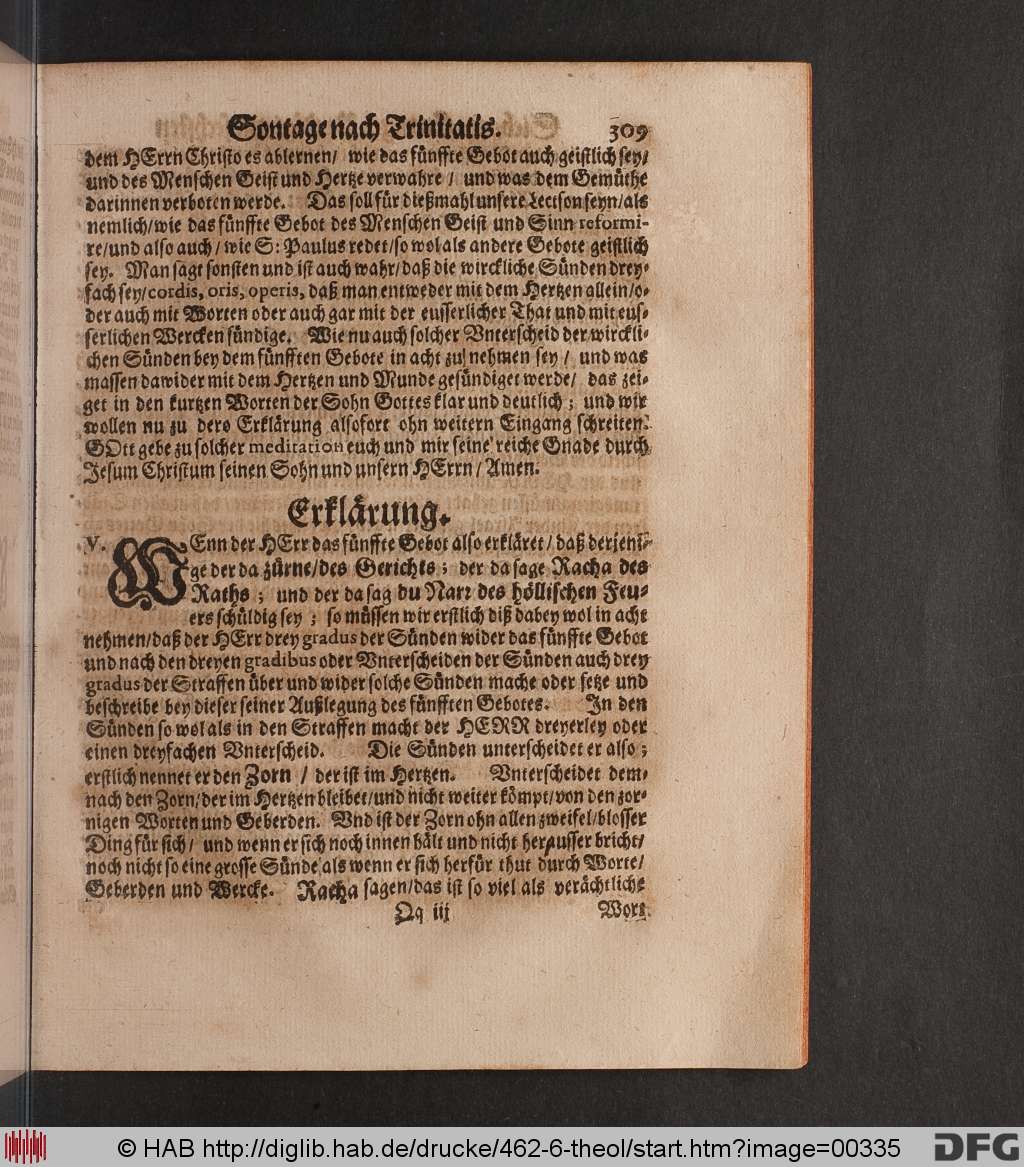 Sontage nach Trinitatis. 309
dem HErrn Christo es ablernen/ wie das fünffte Gebot auch geistlich sey/
und des Menschen Geist und Hertze verwahre / und was dem Gemüthe
darinnen verboten werde. Das soll für dießmahl unsere Lectson seyn/als
nemlich/wie das fünffte Gebot des Menschen Geist und Sinn reformi-
re/und also auch/ wie S: Paulus redet/so wol als andere Gebote geistlich
sey. Man sagt sonsten und ist auch wahr/daß die wirckliche Sünden drey-
fach sey/cordis, oris, operis, daß man entweder mit dem Hertzen allein/o-
der auch mit Worten oder auch gar mit der eusserlicher That und mit eus-
serlichen Wercken sündige. Wie nu auch solcher Vnterscheid der wirckli-
chen Sünden bey dem fünfften Gebote in acht zu nehmen sey / und was
massen dawider mit dem Hertzen und Munde gesündiget werde/ das zei-
get in den kurtzen Worten der Sohn Gottes klar und deutlich ; und wir
wollen nu zu dero Erklärung alsofort ohn weitern Eingang schreiten.
GOtt gebe zu solcher meditation euch und mir seine reiche Gnade durch
Jesum Christum seinen Sohn und unsern HErrn / Amen.
Erklärung.
V. WEnn der HErr das fünffte Gebot also erkläret / daß derjeni-
ge der da zürne/des Gerichts ; der da sage Racha des
Raths ; und der da sag du Narr des höllischen Feu-
ers schüldig sey ; so müssen wir erstlich diß dabey wol in acht
nehmen/daß der HErr drey gradus der Sünden wider das fünffte Gebot
und nach den dreyen gradibus oder Vnterscheiden der Sünden auch drey
gradus der Straffen über und wider solche Sünden mache oder setze und
beschreibe bey dieser seiner Außlegung des fünfften Gebotes. In den
Sünden so wol als in den Straffen macht der HERR dreyerley oder
einen dreyfachen Vnterscheid. Die Sünden unterscheidet er also ;
erstlich nennet er den Zorn / der ist im Hertzen. Vnterscheidet dem-
nach den Zorn/der im Hertzen bleibet/und nicht weiter kömpt/von den zor-
nigen Worten und Geberden. Vnd ist der Zorn ohn allen zweifel/blosser
Ding für sich/ und wenn er sich noch innen hält und nicht herausser bricht/
noch nicht so eine grosse Sünde als wenn er sich herfür thut durch Worte/
Geberden und Wercke. Racha sagen/das ist so viel als verächtliche
Qq iij Wort
© HAB http://diglib.hab.de/drucke/462-6-theol/start.htm?image=00335 DFG